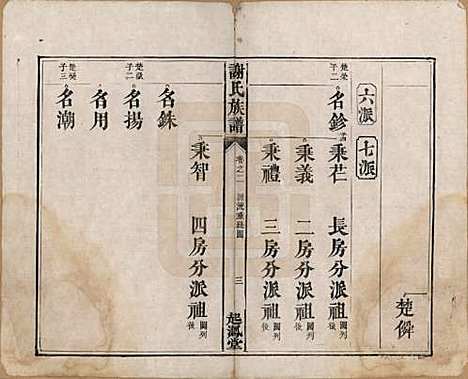 六派
七派
楚僯
楚榮子二
名鉁
秉仁 長房分派祖 圖列後
秉義 二房分派祖 圖列後
秉禮 三房分派祖 圖列後
謝氏族譜
卷之二
三
起鳳堂
秉智 四房分派祖 圖列後
名銖
子二
名揚
名用
子三
名潮